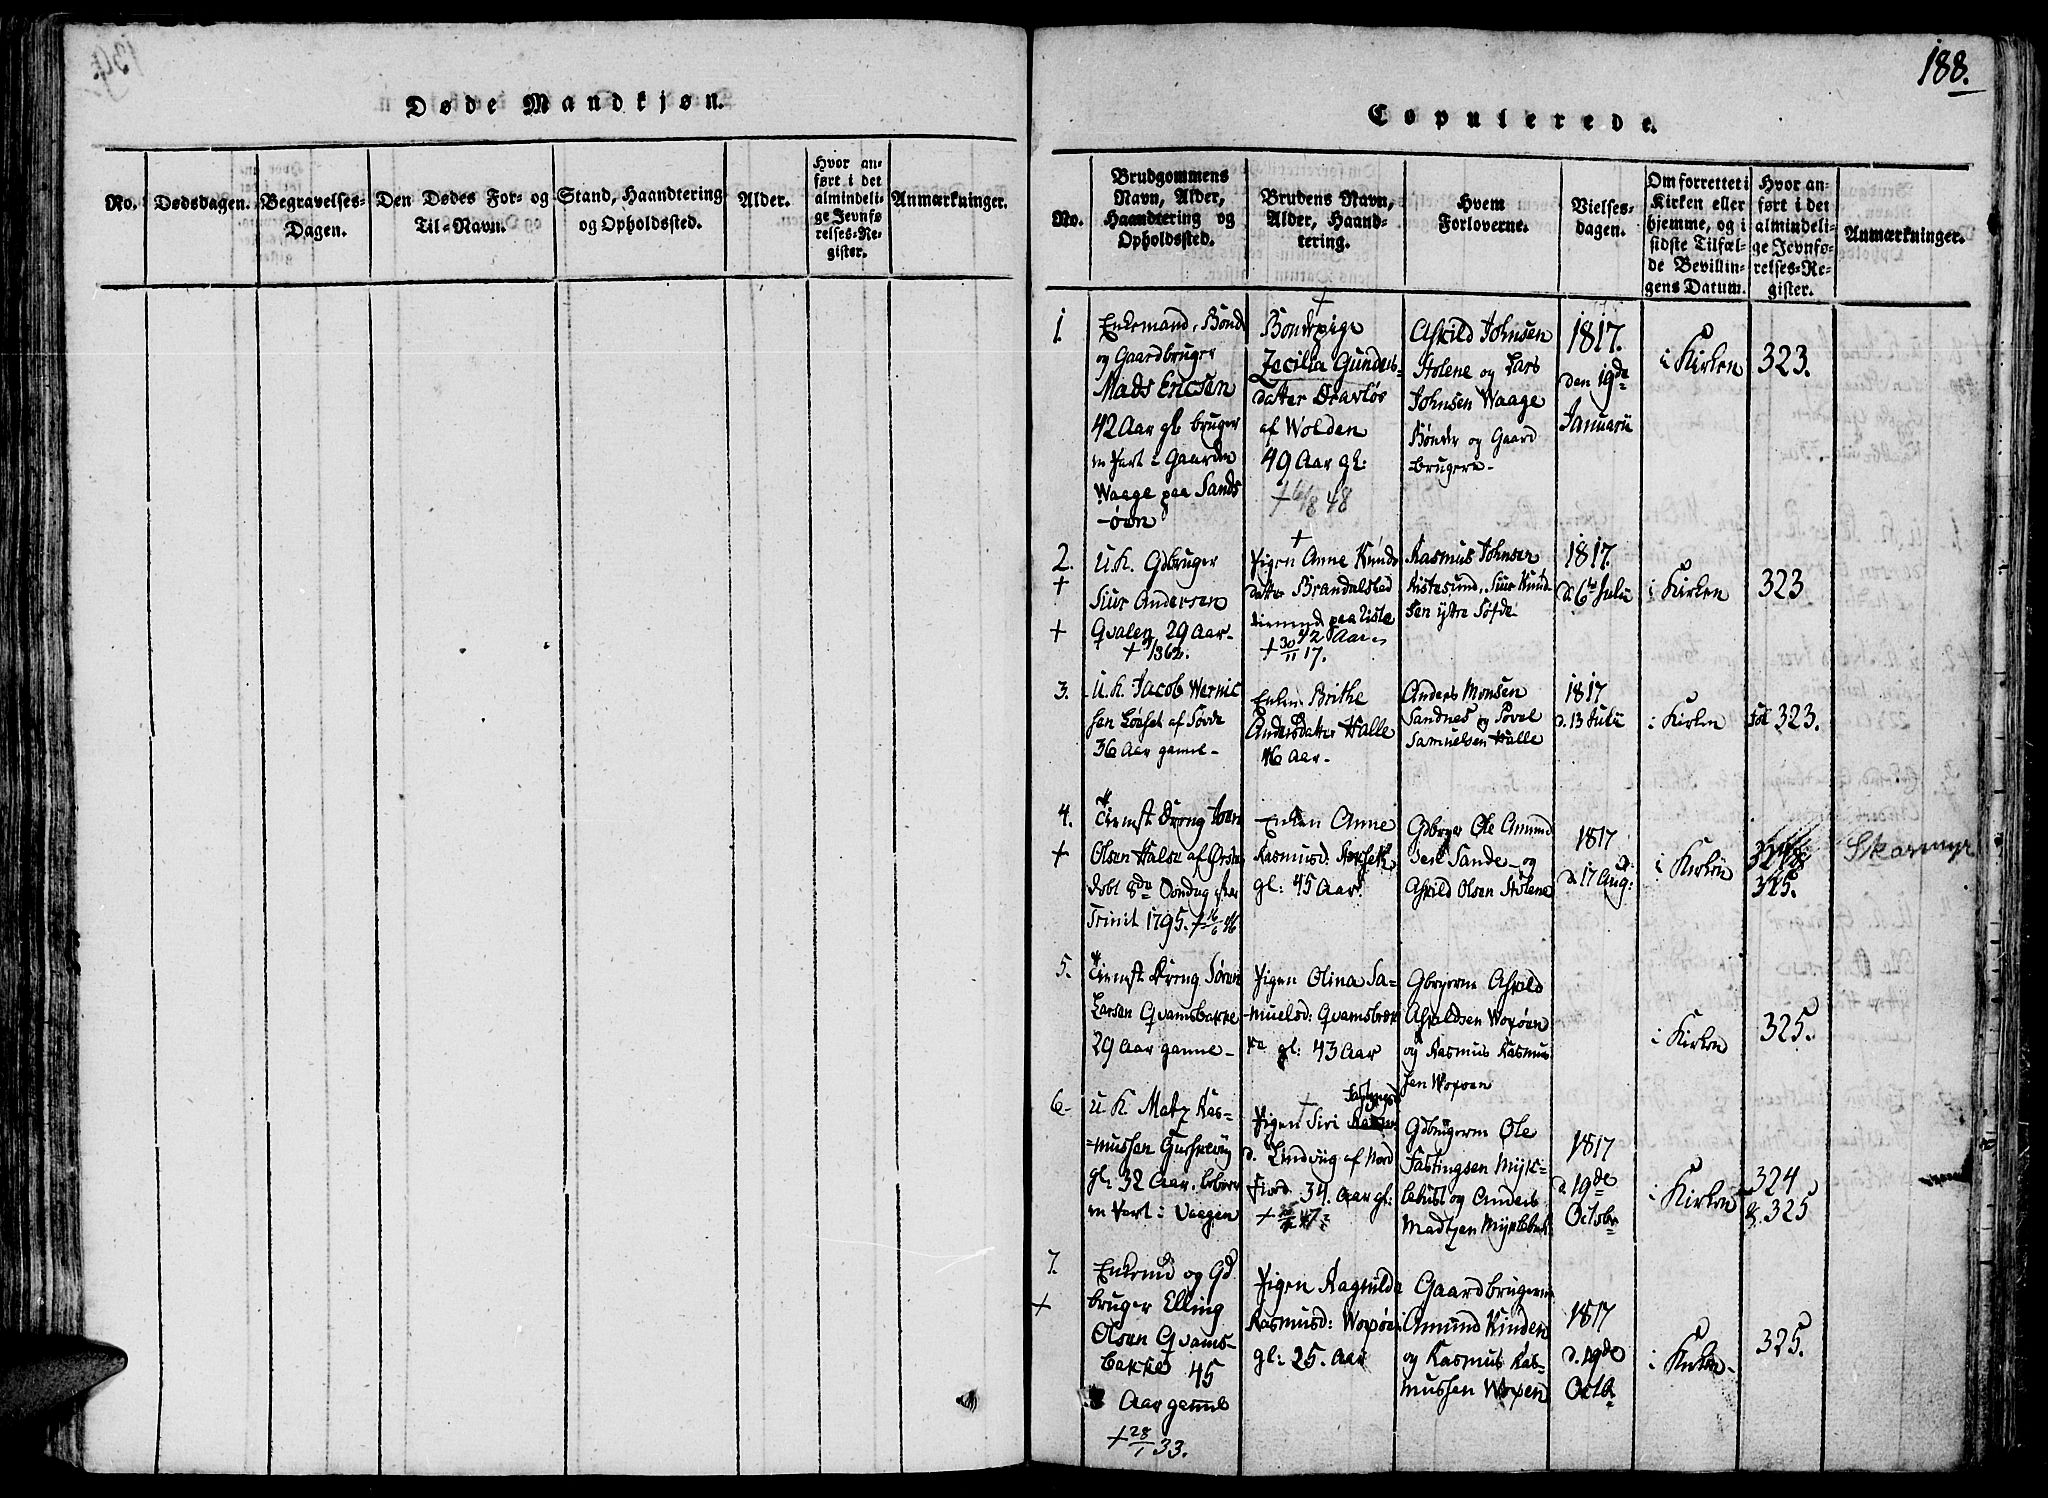 Døde Mandkjøn.
No.
Dødsdagen.
Begravelses-
Dagen.
Den Dødes For- og
Til-Navn.
Stand, Haandtering
og Opholdssted.
Alder.
Hvor an-
ført i det
almindeli-
ge Jevnfø-
relses-Re-
gister.
Anmærkninger.
188.
Copulerede.
No.
Brudgommens
Navn, Alder,
Haandtering og
Opholdssted.
Brudens Navn,
Alder, Haand-
tering.
Hvem
Forloverne.
Vielses-
dagen.
Om forrettet i
Kirken eller
hjemme, og i
sidste Tilfæl-
de Bevillin-
gens Datum.
Hvor an-
ført i det
almindeli-
ge Jevnfø-
relses-Re-
gister.
Anmærkninger.
1.
Enkemand, Bond
og Gaardbruger
Mads Ericsen
42 Aar gl. bruger
en Part i Gaarden
Waage paa Sands
-øen
+
Bondepige
Zecilia Gunders-
datter
af Wolden
49 Aar gl:
48
Askild Johnsen
Stolene og Lars
Johnsen Waage
Bønder og Gaard
brugere-
1817.
den 19de
Januarii
i Kirken
323.
2.
+
+
U.K. Gdbruger
Siur Andersen
Qvalen, 29 Aar-
+ 1862.
+
Pigen Anne Knuds
datter Brandalstad
tienende paa
42 Aar
+ 30/11 17.
Rasmus Johnsen
Siur Knud
sen ytre
1817.
d: 6te Julii
i Kirken
323
3.
U.K. Jacob
sen Løset af Søvde
36 Aar gamle-
Enken Brithe
Andersdatter Halle
46 Aar-
Anders Monsen
Sandnes og Povel
Samuelsen Halle
1817
d. 13 Julii
i Kirken
fol 323.
4.
+
Tienest Dreng Iver
Olsen Halse af Ørsten
døbt 8de Søndag efter
Trinit 1795. + 16/6 46
Enken Anne
Rasmusd:
gl: 45 Aar
Gdbryer Ole Amund
sen Sande- og
Askild Olsen Stolene
1817
d. 17 Aug:
i Kirken
325.
5.
Tienest Dreng Søren
Larsen Qvamsbakke
29 Aar gamle-
Pigen Olina Sa-
muelsd: Qvamsbak
ke gl: 43 Aar
Gbryerne Askild
Askildsen Woxøen
og Rasmus Rasmus
sen Woxøen
i Kirken
325.
6-
U K Matz Ras-
=mussen
gl: 32 Aar. beboer
en Part i Vaagen
+
Pigen Siri
d. Lindviig af Nord
fiord 34. Aar gl:
Gdbrugerne Ole
Fastingsen Mykle-
bust og Anders
Madtzen Myklebust
1817
d 19de
Octobr
i Kirken
324
& 325
7.
+
Enkemd og Gd
bruger Elling
Olsen Qvams-
bakke 45
Aar gamle
+ 28/1 33.
Pigen Ragnilde
Rasmusd: Woxøen
gl: 25. Aar
Gaardbrugerne
Amund Kinden
og Rasmus Ras-
mussen Woxøen
1817
d. 19de
Octb
i Kirken-
325.